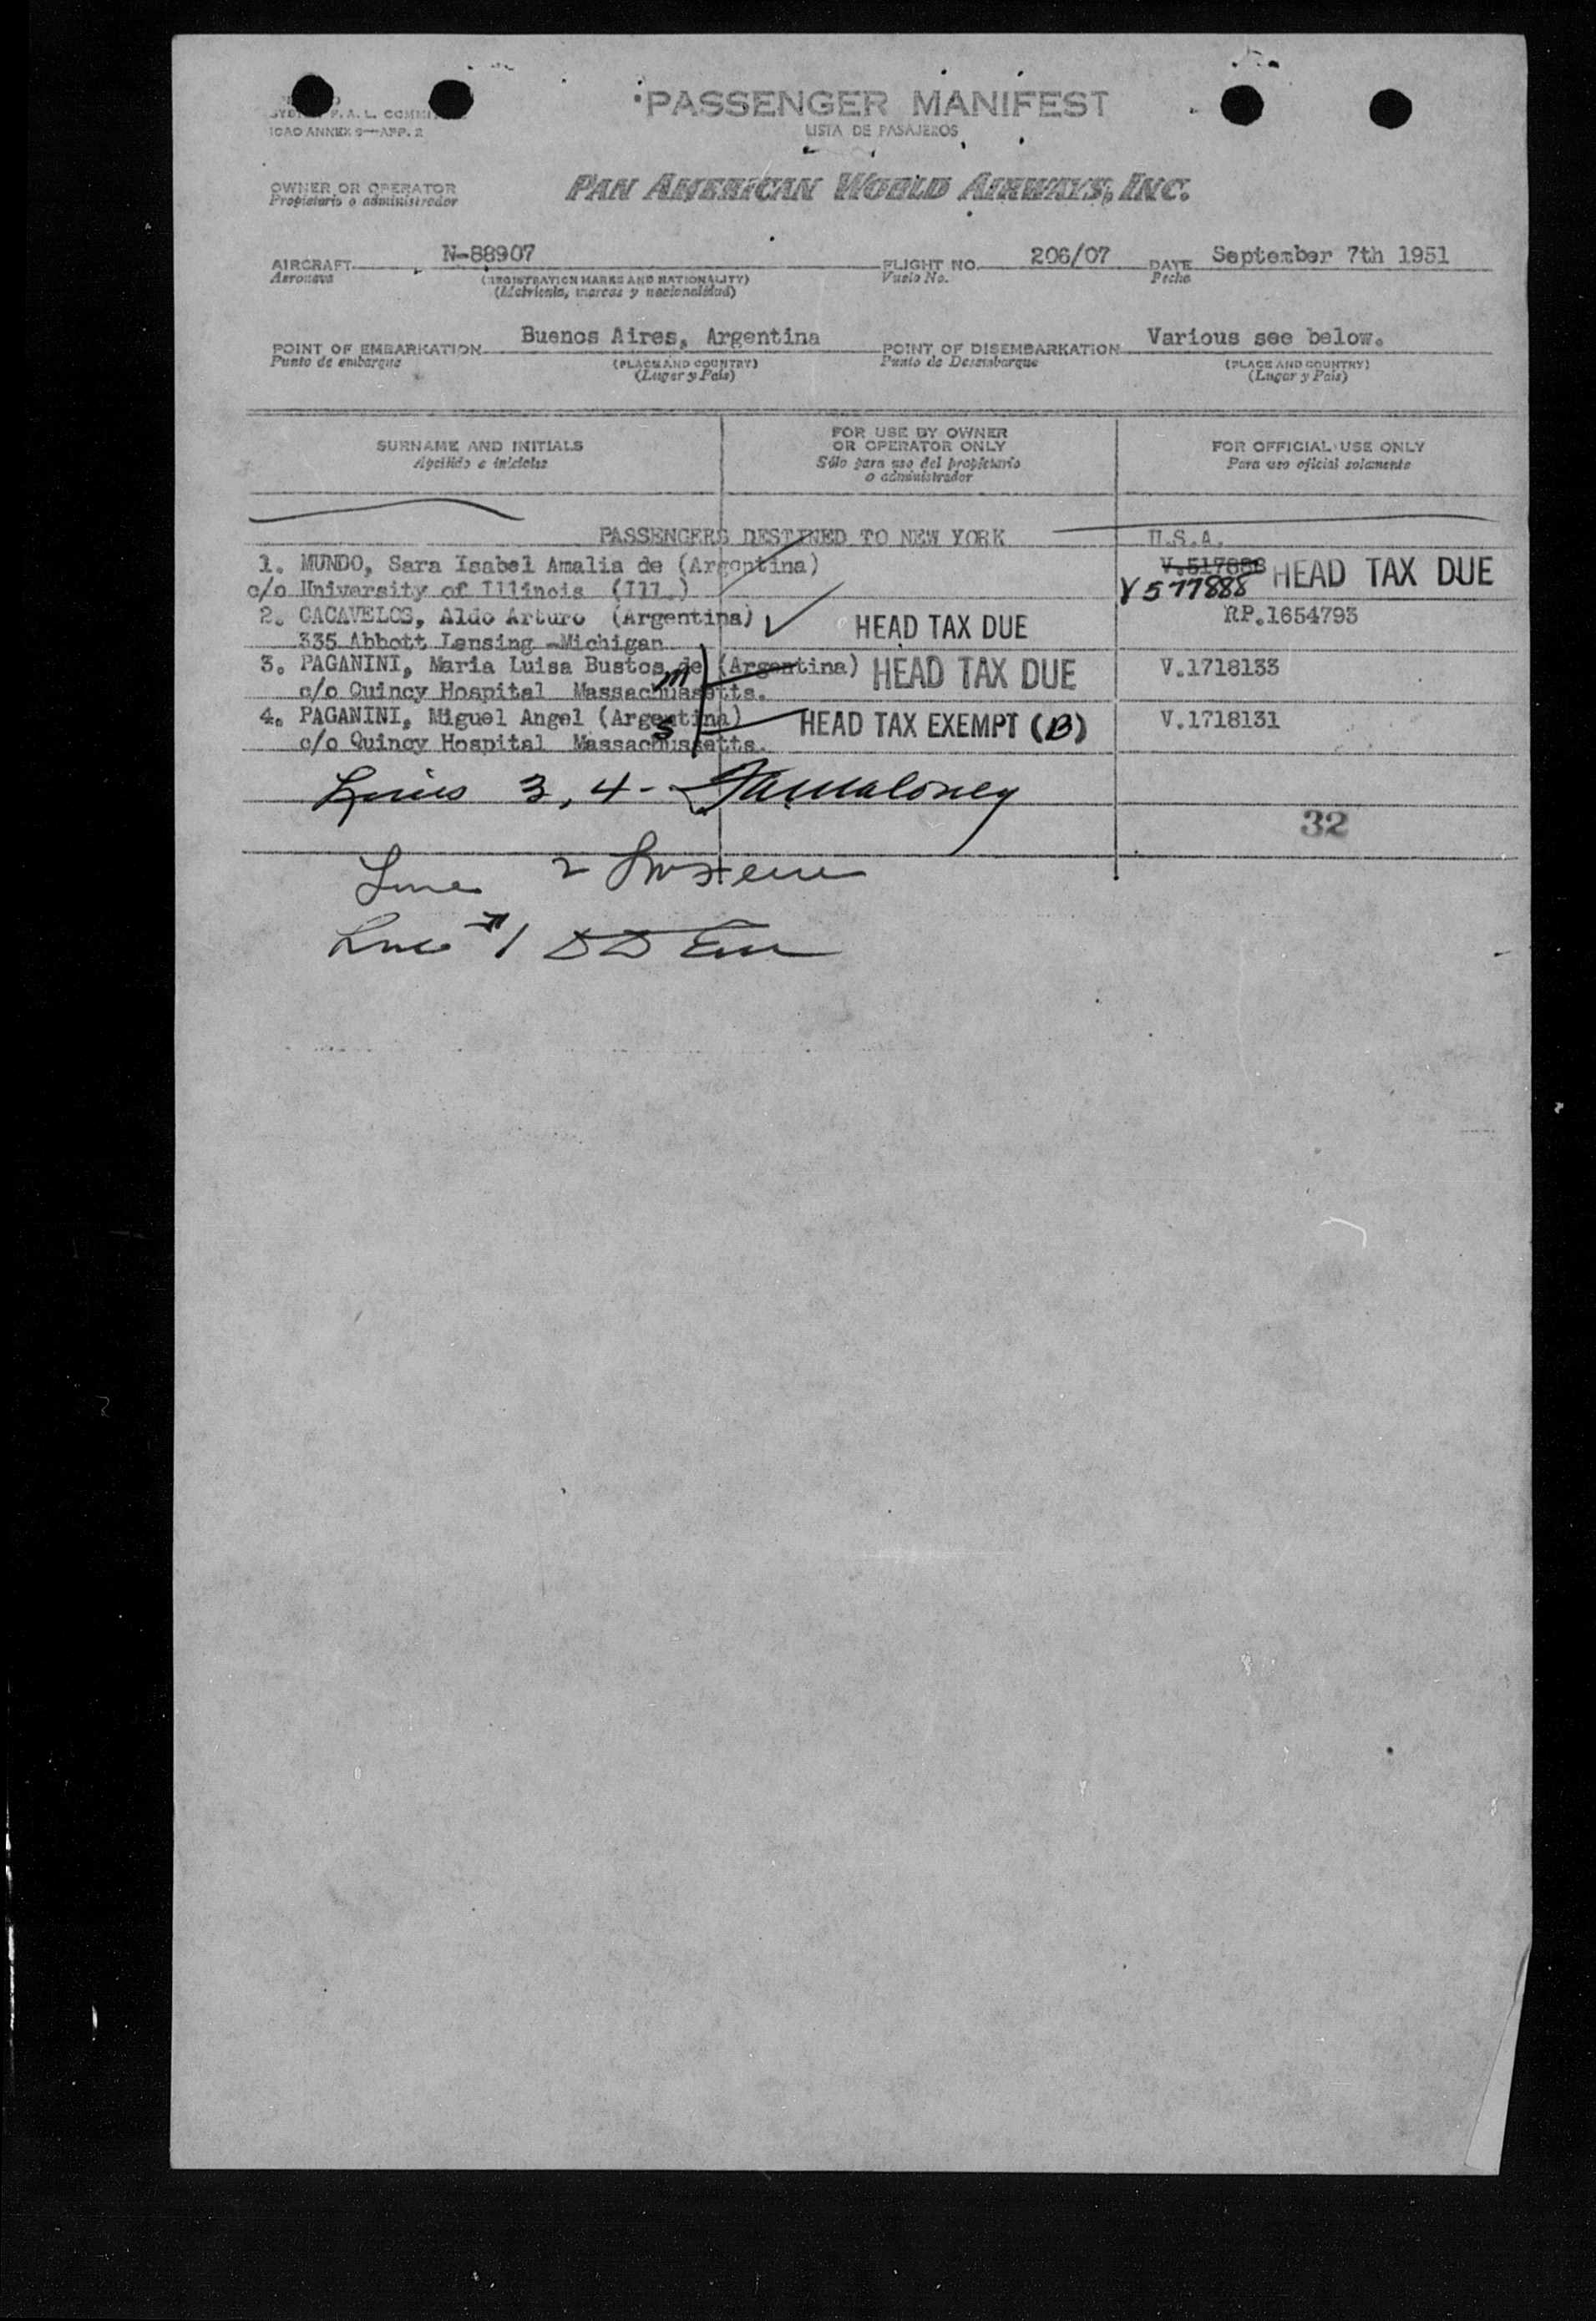 F. A. L. COMMITTEE
ICAO ANNEX 9—APP. 2
PASSENGER MANIFEST
LISTA DE PASAJEROS
OWNER OR OPERATOR
Propietario o administrador
PAN AMERICAN WORLD AIRWAYS, INC.
AIRCRAFT N-88907 FLIGHT NO. 206/07 DATE September 7th 1951
Aeronave (REGISTRATION MARKS AND NATIONALITY) Vuelo No. Fecha
(Matrícula, marcas y nacionalidad)
POINT OF EMBARKATION Buenos Aires, Argentina POINT OF DISEMBARKATION Various see below.
Punto de embarque (PLACE AND COUNTRY) Punto de Desembarque (PLACE AND COUNTRY)
(Lugar y País) (Lugar y País)
SURNAME AND INITIALS
Apellido e iniciales
FOR USE BY OWNER
OR OPERATOR ONLY
Sólo para uso del propietario
o administrador
FOR OFFICIAL USE ONLY
Para uso oficial solamente
PASSENGERS DESTINED TO NEW YORK U.S.A.
1. MUNDO, Sara Isabel Amalia de (Argentina) V.517888 HEAD TAX DUE
c/o University of Illinois (Ill.) V577888
2. CACAVELOS, Aldo Arturo (Argentina) HEAD TAX DUE RP.1654793
335 Abbott Lansing -Michigan
3. PAGANINI, Maria Luisa Bustos de (Argentina) HEAD TAX DUE V.1718133
c/o Quincy Hospital Massachussetts. M
4. PAGANINI, Miguel Angel (Argentina) HEAD TAX EXEMPT (B) V.1718131
c/o Quincy Hospital Massachussetts. S
Lines 3, 4 - Maloney
32
Line 2
Line #1